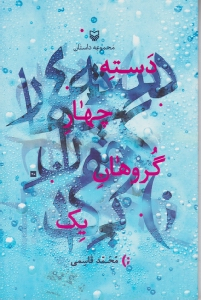 مجموعه داستان
دَسته
چهار
گُروهان
یِک
مُحمّد قاسمی